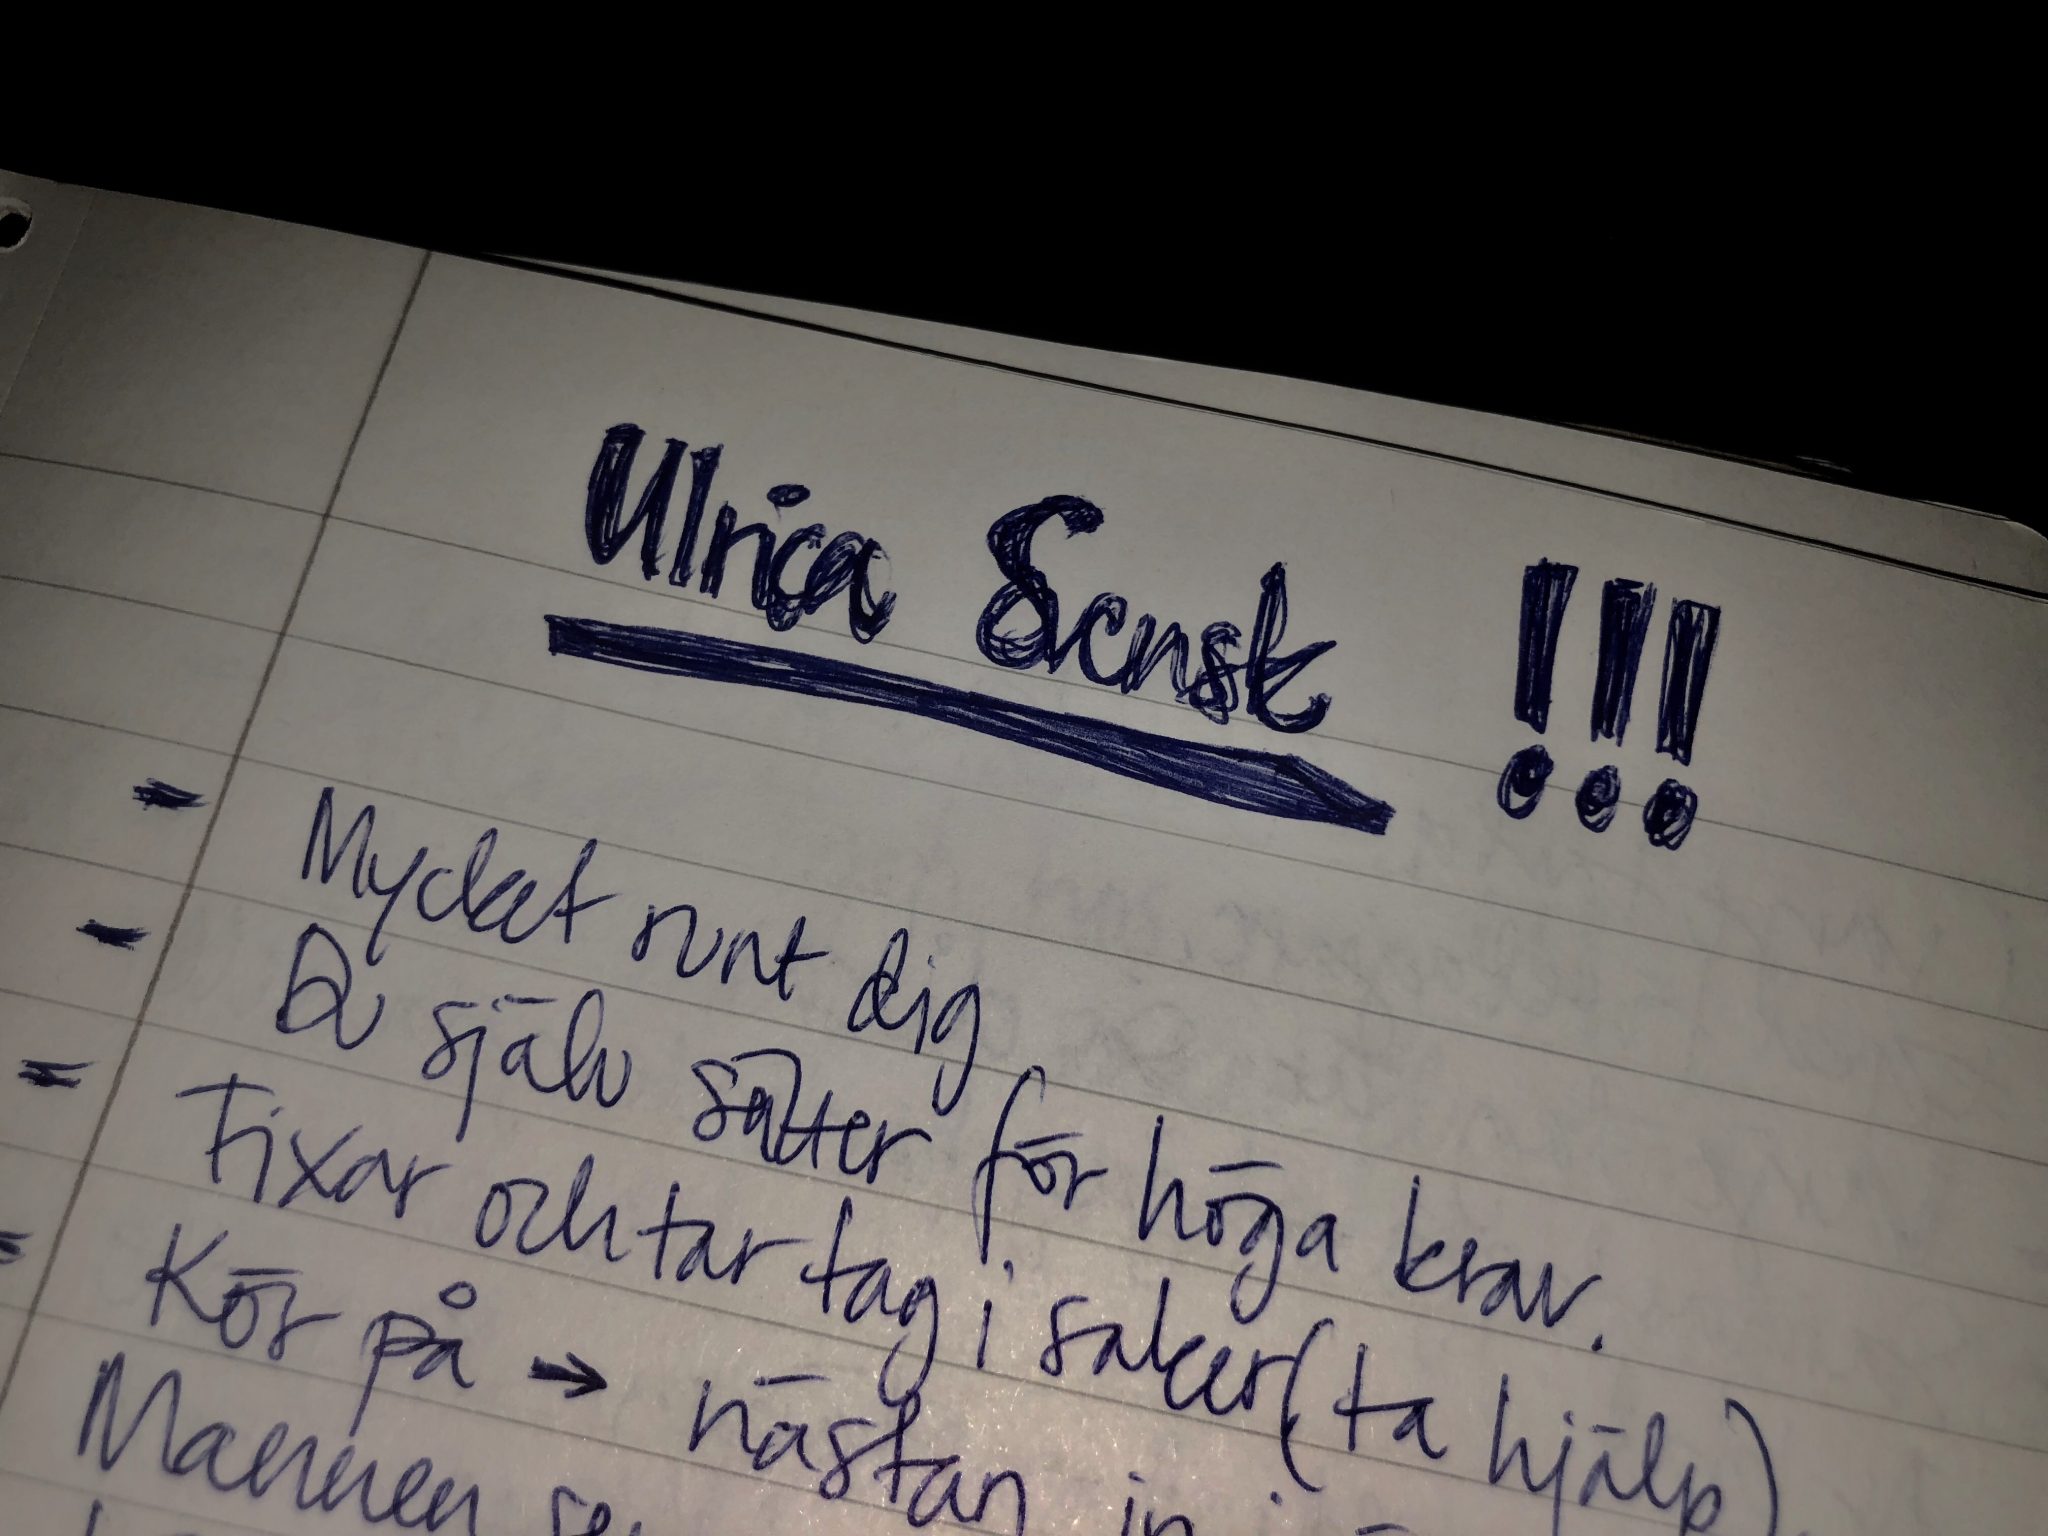 Ulrica Svensk !!!
- Mycket runt dig
- Du själv sätter för höga krav.
= Fixar och tar tag i saker (ta hjälp)
= Kör på → nästan in i
Mannen